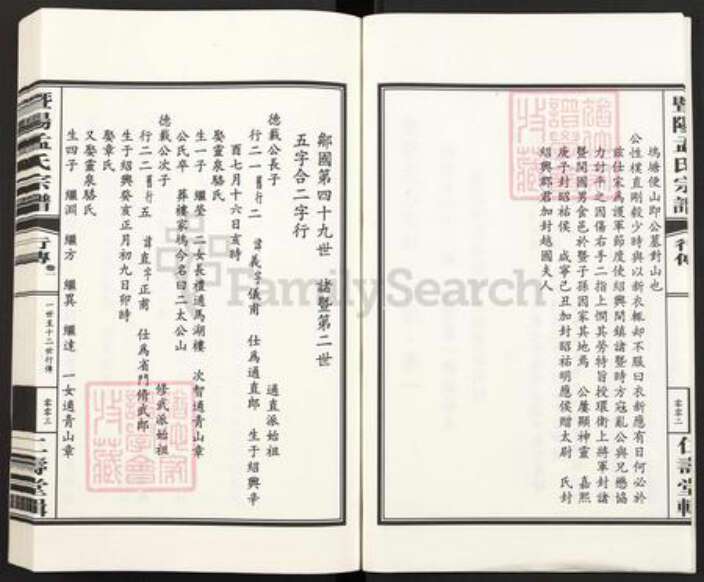 暨陽孟氏宗譜
行傳
塢塘便山即公墓對山也
公性樸直剛毅少時與以新衣輒却不服曰衣新應有日何必於
茲仕宋為護軍節度使紹興間鎮諸暨時方寇亂公與兄懋協
力討平之因傷右手二指上憫其勞特旨授環衛上將軍封諸
暨開國男食邑於暨子孫因家其地焉 公屢顯神靈 嘉熙
庚子封昭祐侯 咸寧己丑加封昭祐明應侯贈太尉 氏封
紹興郡君加封越國夫人
零零二
仁壽堂輯
FamilySearch
鄒國第四十九世 諸暨第二世
五字合二字行
德載公長子 通直派始祖
行二一舊行二 諱義字儀甫 仕為通直郎 生于紹興辛
酉七月十六日亥時
娶靈泉駱氏
生一子 繼瑩 二女長禮適馬湖樓 次智適青山章
公氏卒 葬樓家塢今名曰二太公山
德載公次子 修武派始祖
行二二舊行五 諱直字正甫 仕為省門脩武郎
生于紹興癸亥正月初九日卯時
娶章氏
又娶靈泉駱氏
生四子 繼淵 繼方 繼異 繼達 一女適青山章
暨陽孟氏宗譜
行傳卷一
一世至十二世行傳
零零三
仁壽堂輯